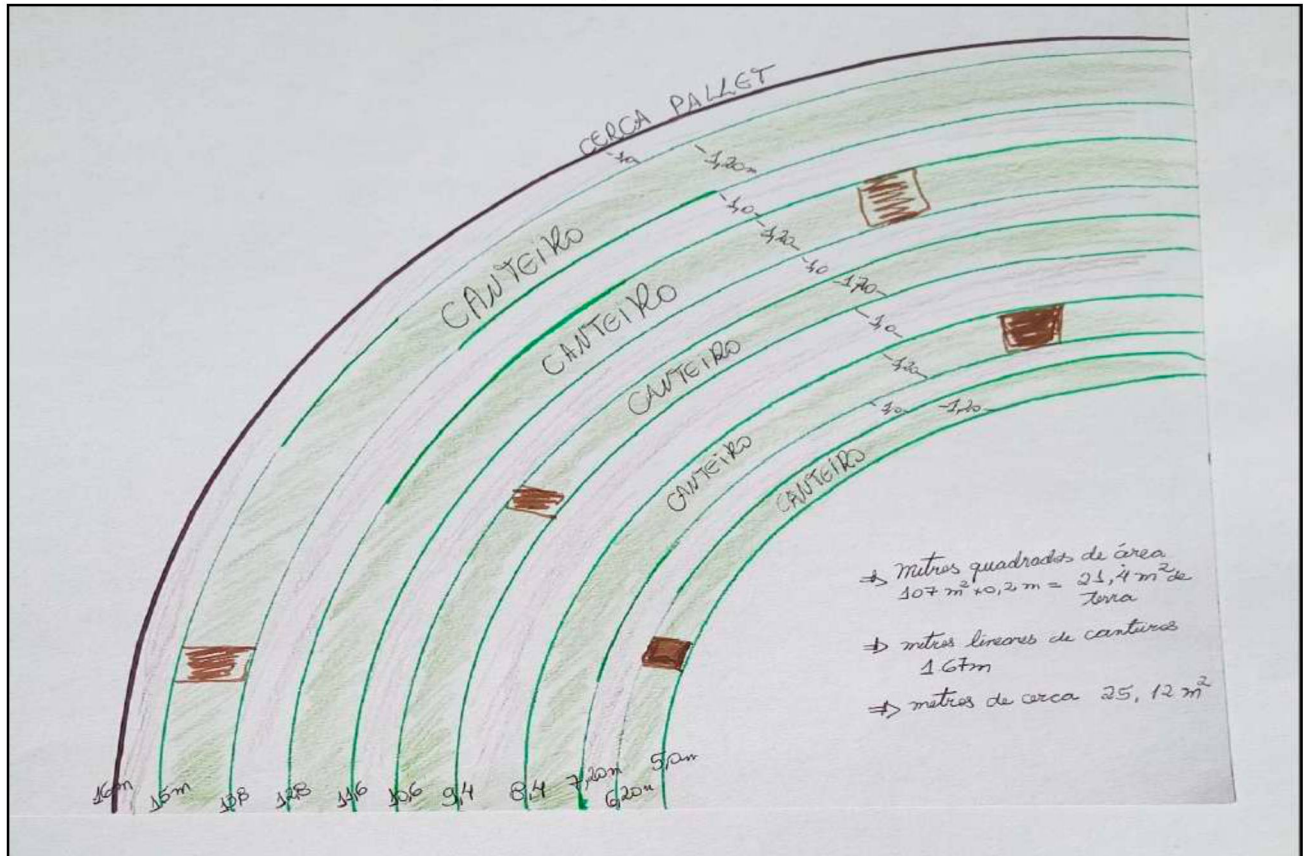 CERCA PALLET
-1,0-
-1,20m
CANTEIRO
-1,0-
-1,20-
CANTEIRO
-1,0
-1,20-
CANTEIRO
-1,0-
-1,20-
CANTEIRO
-1,0-
-1,20-
CANTEIRO
⇒ metros quadrados de área
107 m² x 0,2 m = 21,4 m² de
terra
⇒ metros lineares de canteiros
167m
⇒ metros de cerca 25,12 m²
16m 15m 13,8 12,8 11,6 10,6 9,4 8,4 7,20m 6,20m 5,0m